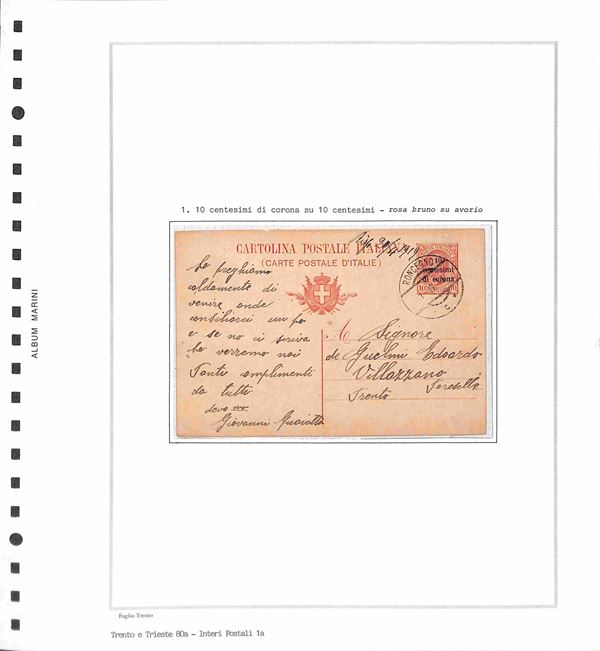 ALBUM MARINI
1. 10 centesimi di corona su 10 centesimi - rosa bruno su avorio
CARTOLINA POSTALE ITALIANA
(CARTE POSTALE D'ITALIE)
20/4 1919
centesimi
di corona
RONCEGNO
La preghiamo
caldamente di
venire onde
consigliarci un po
e se no ci scriva
che verremo noi
Tanti complimenti
da tutti
devo
Giovanni
A Signore
de Guelmi Edoardo
Villazzano
Trento
Foglio Trento
Trento e Trieste 80a - Interi Postali 1a